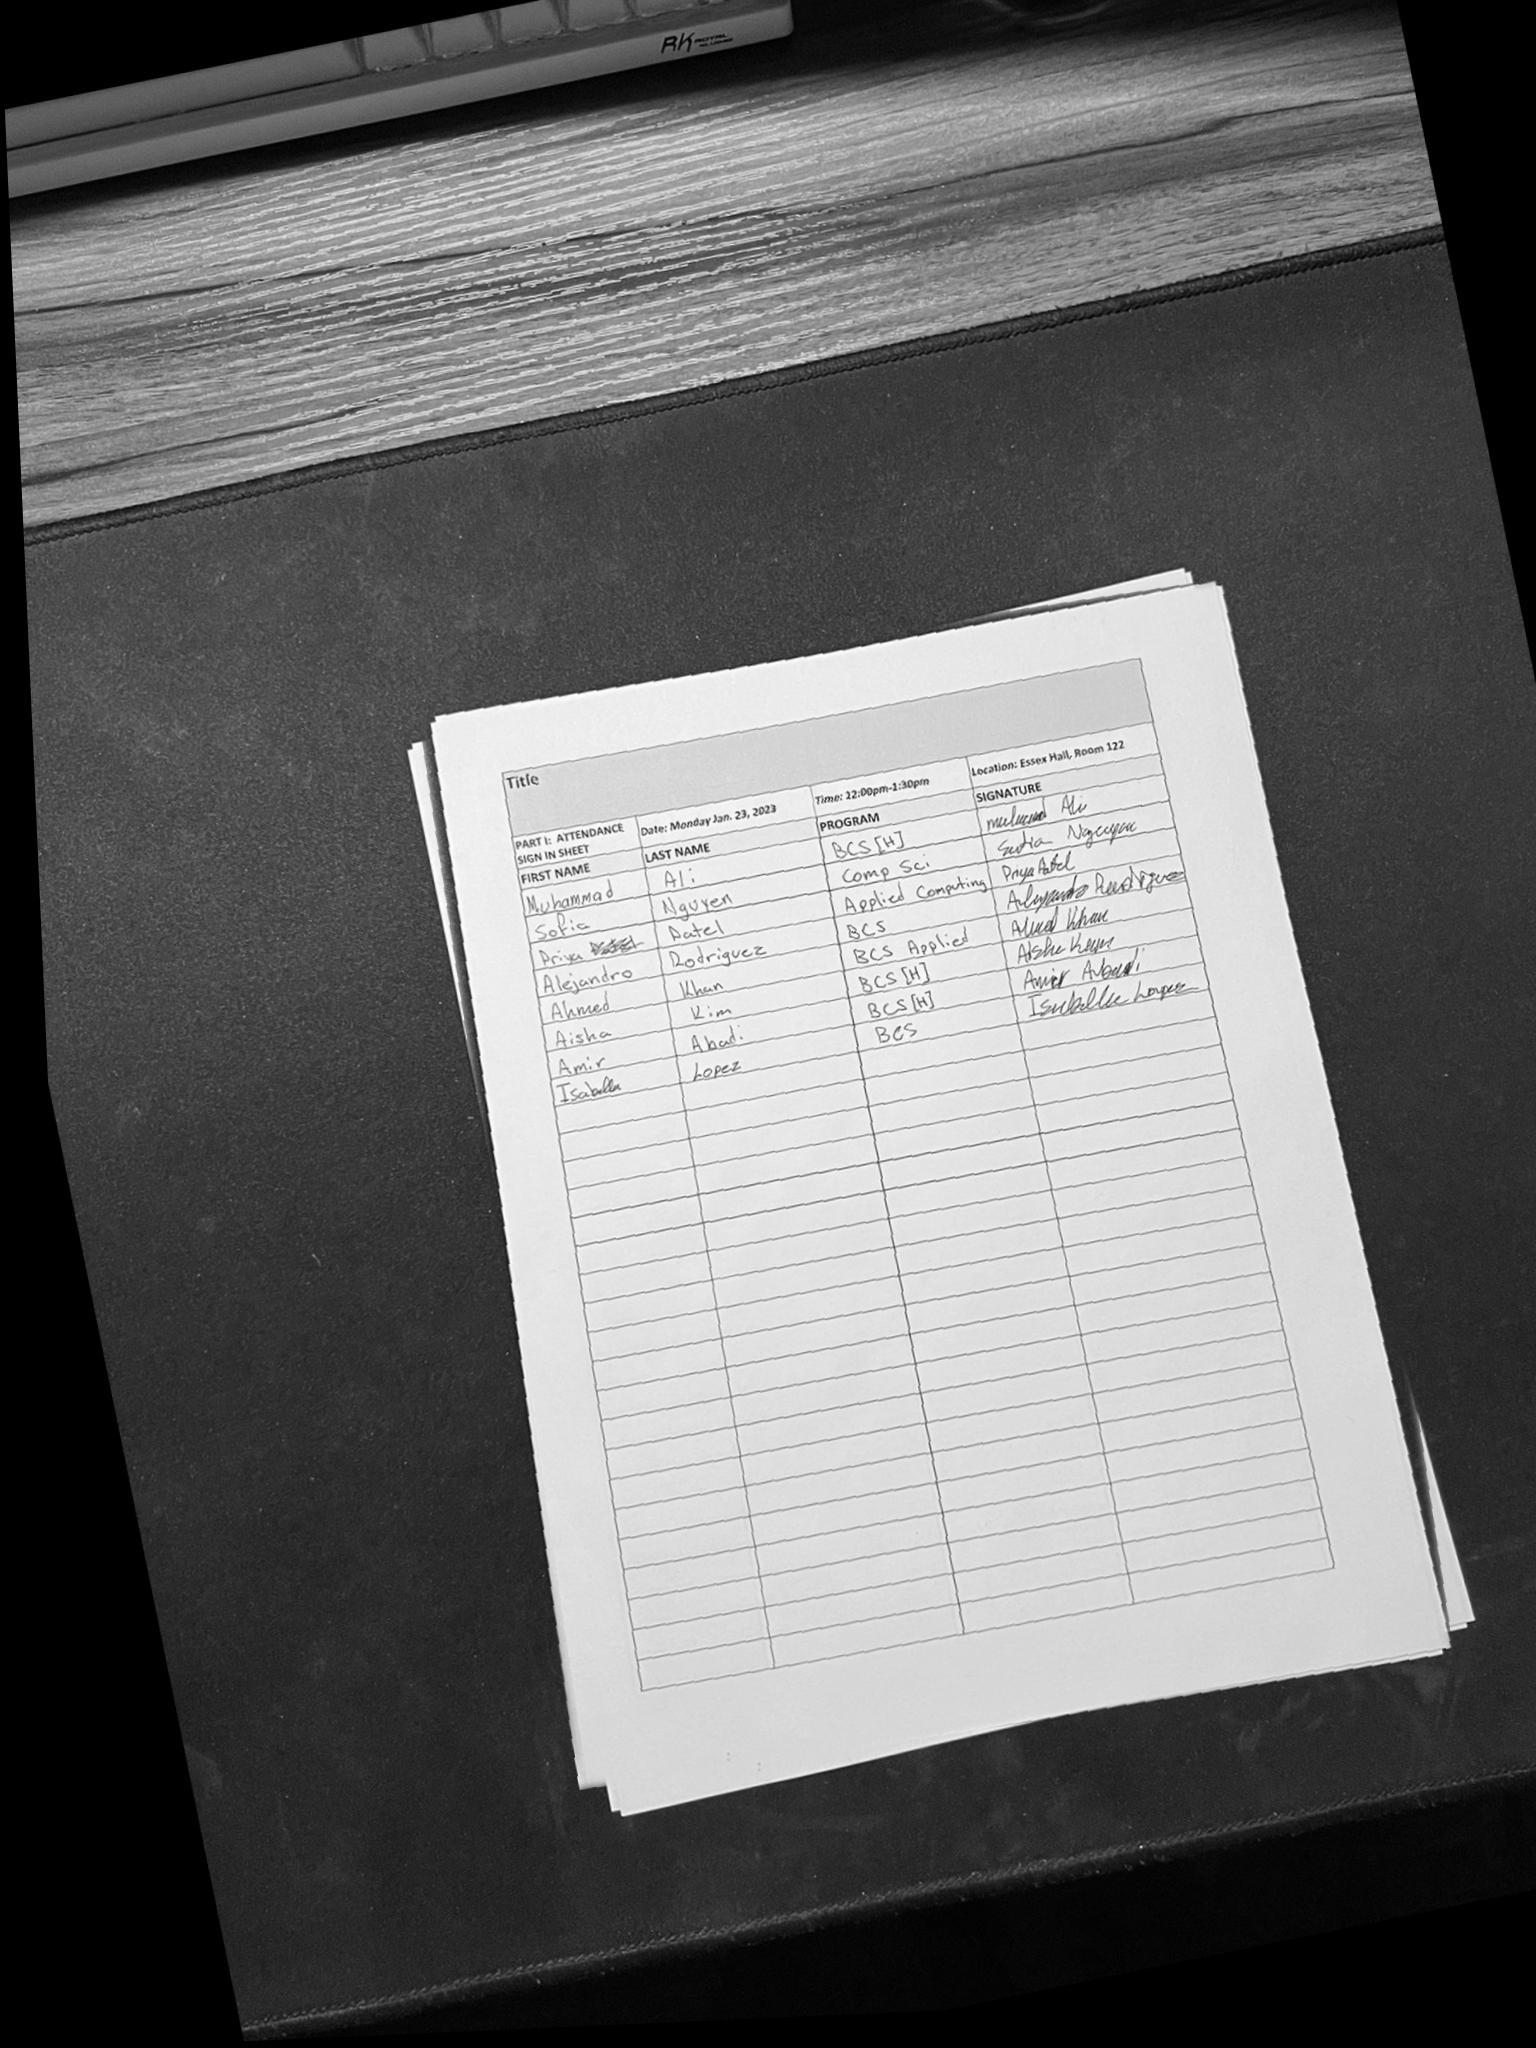 RK ROYAL KLUDGE
Title
PART I: ATTENDANCE SIGN IN SHEET Date: Monday Jan. 23, 2023 Time: 12:00pm-1:30pm Location: Essex Hall, Room 122
FIRST NAME LAST NAME PROGRAM SIGNATURE
Muhammad Ali BCS [H] Ali
Sofia Nguyen Comp Sci
Priya Patel Applied Computing Priya Patel
Alejandro Rodriguez BCS Alejandro Rodriguez
Ahmed Khan BCS Applied Ahmed Khan
Aisha Kim BCS [H] Aisha
Amir Abadi BCS [H] Amir Abadi
Isabella Lopez BCS Isabella Lopez